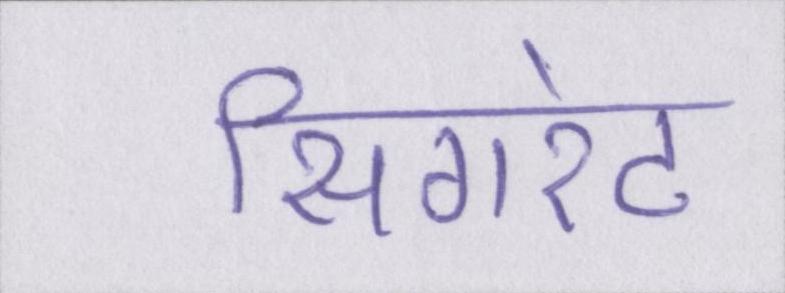 सिगरेट